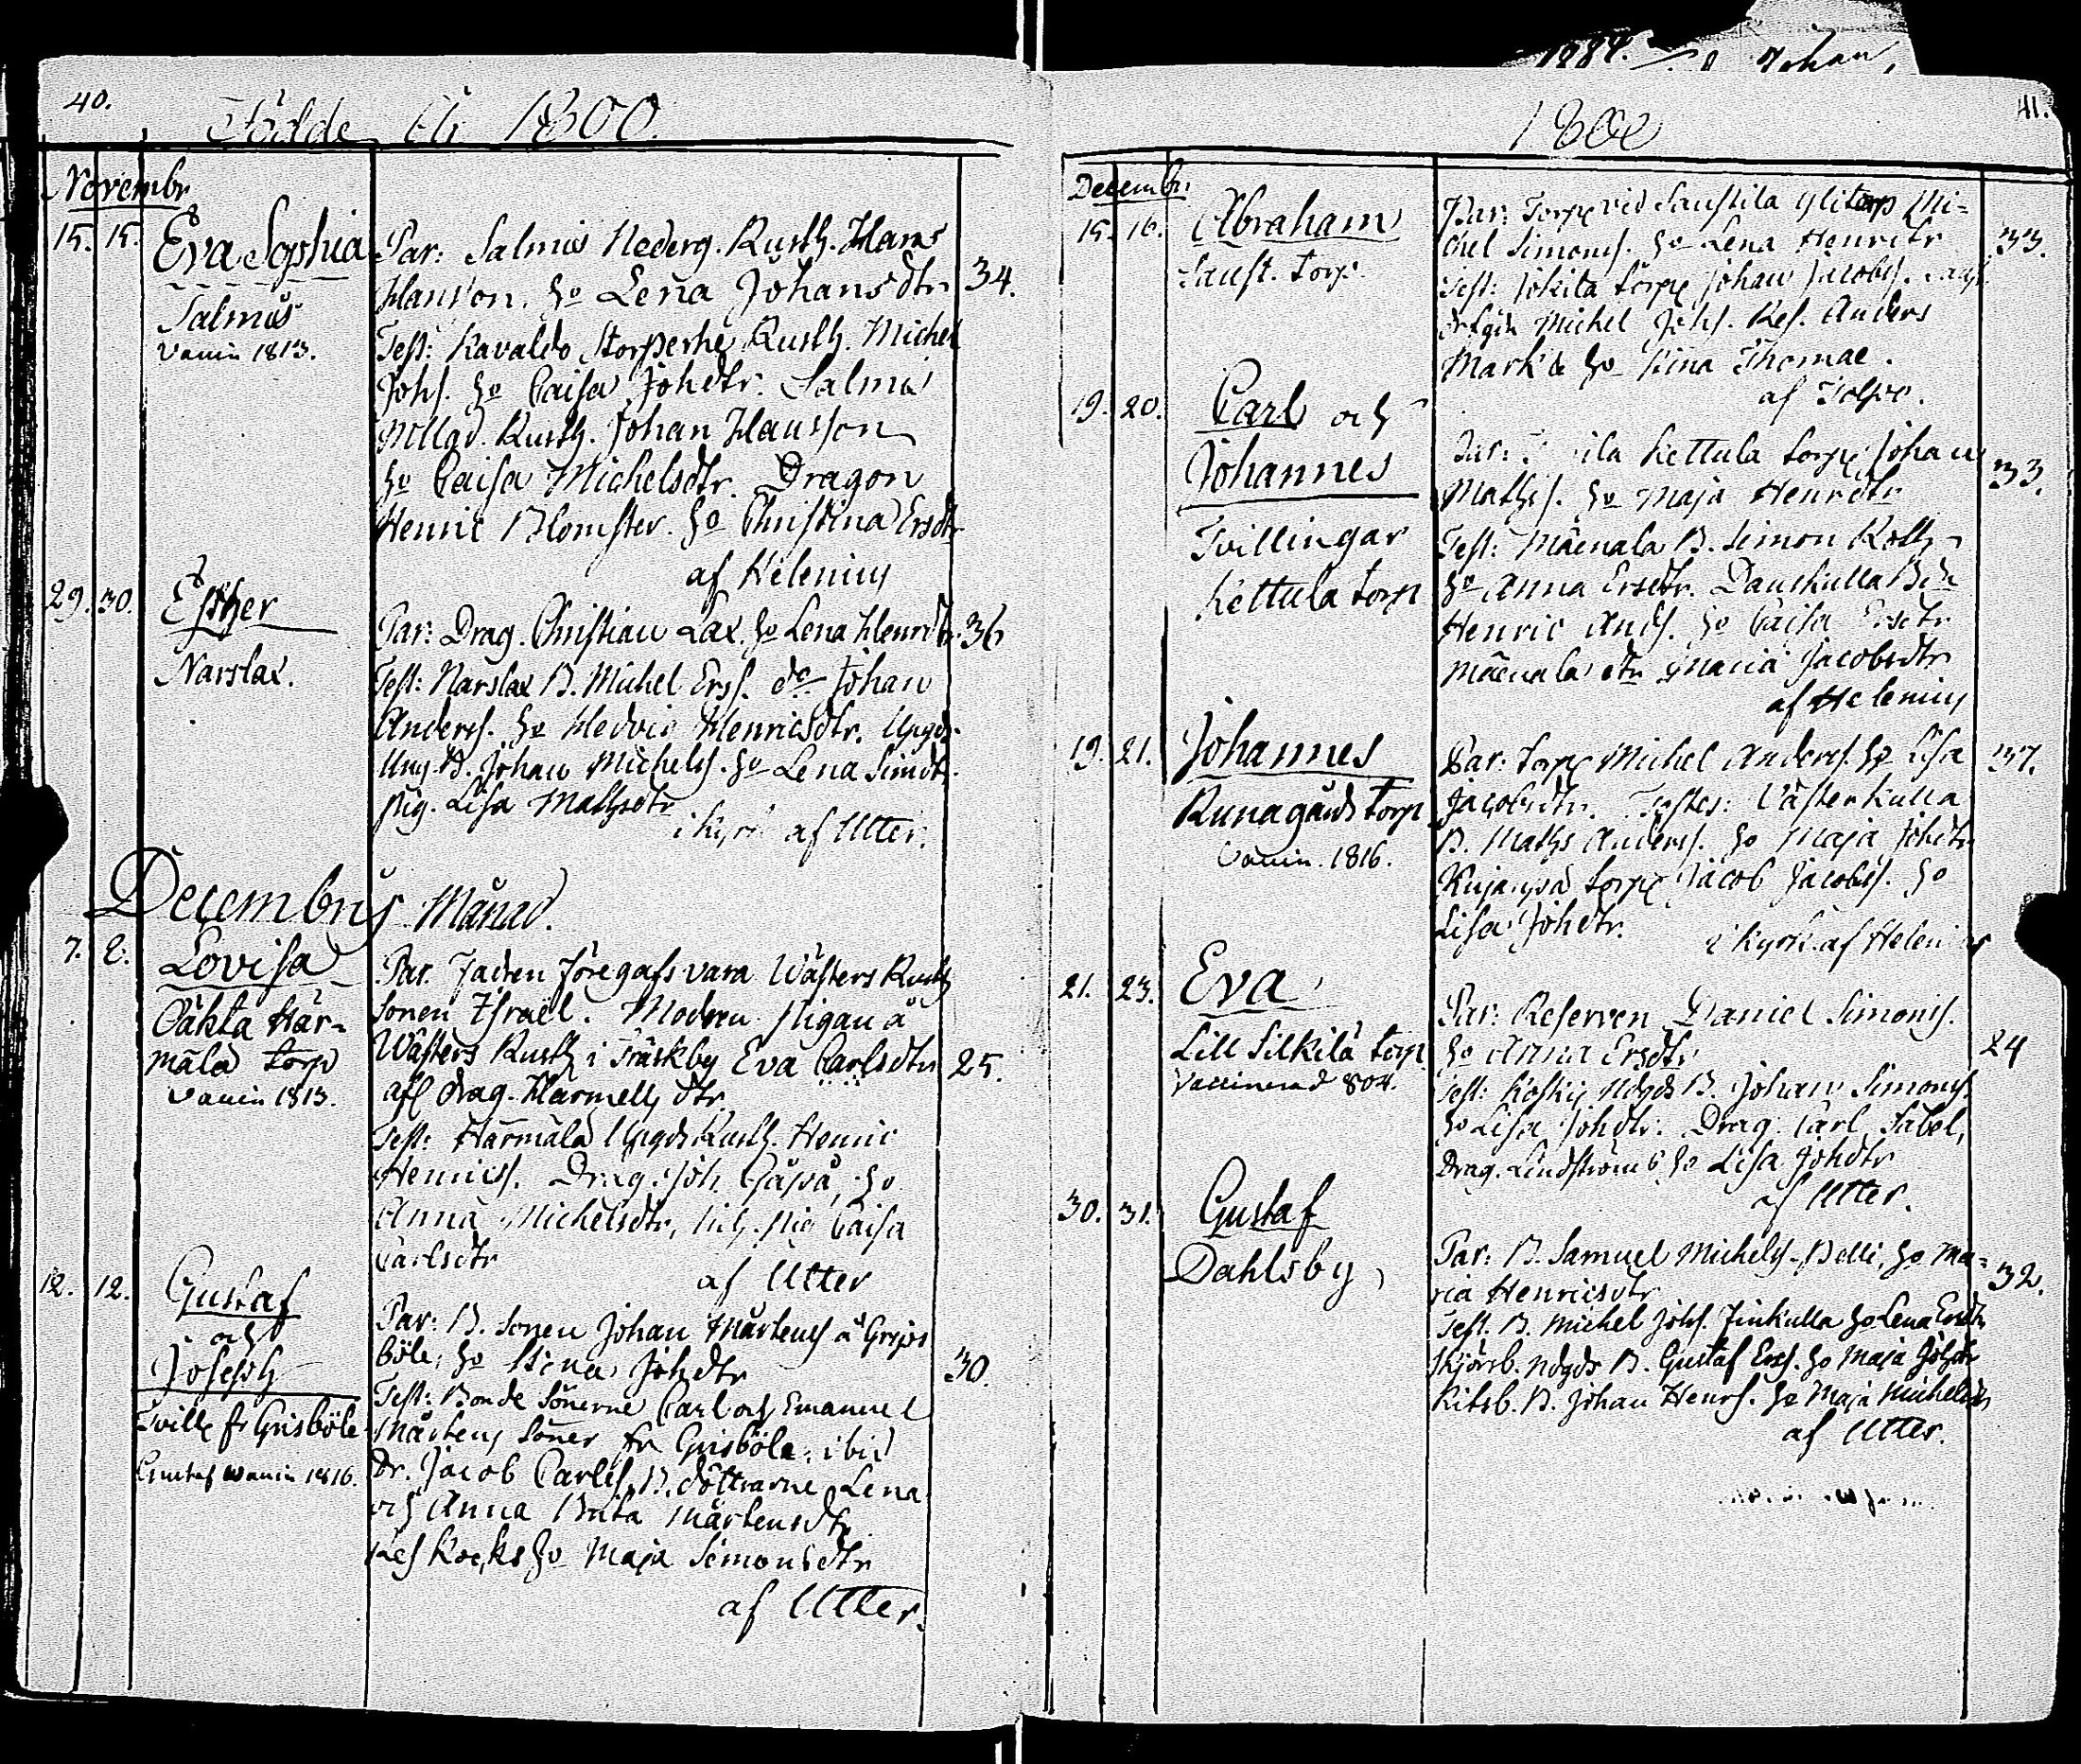 40.
Födde År 1800.
Novembr
15. 15. Eva Sophia
Salmis
Vaccin 1813.
Par: Salmis Nederg. Rusth. Hans
Hansson. Ho Lena Johansdtr 34.
Test: Kavaldo Storperhe Rusth. Michel
Johs. Ho Caisa Johdtr. Salmis
Mellgd. Rusth. Johan Hansson
Ho Caisa Michelsdtr. Dragon
Henric Blomster. Ho Christina Ersdtr
af Helenius
29. 30. Esther
Narslax.
Par: Drag. Christian Lax. Ho Lena Henrdtr. 36
Test: Narslax B. Michel Erss. do Johan
Anderss. Ho Hedvig Henricsdtr. Uppgds
Ung. B. Johan Michelss. Ho Lena Simdtr.
Pig. Lisa Mathsdtr
i kyrk af Utter.
Decembris Månad.
7. 8. Lovisa
Oäkta Här-
mälä torp
Vaccin 1813.
Par. Fadren föregafs vara Wästers Rusth
Sonen Israël. Modren Pigan å
Wästers Rusth i Träskby Eva Carlsdtr 25.
afl Drag. Harmells dtr
Test: Härmälä Uppgds Rusth. Henric
Henricss. Drag. Joh. Ho
Anna Michelsdtr, Pig Caisa
Carlsdtr
af Utter
12. 12. Gustaf
och
Joseph
Tvill fr Grisböle
Gustaf vaccin 1816.
Par: B. sonen Johan Mårtens å Gris
böle, Ho Stina Johdtr 30.
Test: Bonde Sönerne Carl och Emanuel
Mårtens Söner fr Grisböle, ibid
Dr. Jacob Carlss, B. döttrarne Lena
och Anna Brita Mårtensdtr
Res Kocks Ho Maja Simonsdtr
af Utter.
1884. Johan,
41.
1800
Decembr.
15. 16. Abraham
Saust. Torp.
Par: Torp vid Saustila Mi-
chel Simonss. Ho Lena Henrdtr 33.
Test: Jokila torp Johan Jacobss.
Michel Johs. Res. Anders
Mark & Ho Stina Thomae.
af Tolpo.
19. 20. Carl och
Johannes
Tvillingar
Kettula torp
Par: Kettula torp Johan 33.
Mathss. Ho Maja Henrdtr
Test: Mäenala B. Simon
Ho Anna Ersdtr. Danskulla Bde
Henric Ands. Ho Caisa Ersdtr
Mäenala dtr Maria Jacobsdtr
af Helenius
19. 21. Johannes
Runagårds torp
Vaccin. 1816.
Par: torp Michel Anderss. Ho Lisa 37.
Jacobsdtr. Testes: Västerkulla
B. Maths Anderss. Ho Maja Johdtr
torp Jacob Jacobss. Ho
Lisa Johdtr.
i kyrk. af Helenius
21. 23. Eva
Lill Silkilä torp
Vaccinerad 804.
Par: Reserven Daniel Simonss.
Ho Anna Ersdtr 24
Test: Koskis Ndgds B. Johan Simonss
Ho Lisa Johdtr. Drag. Carl Sabel,
Drag. Lindströms Ho Lisa Johdtr
af Utter.
30. 31. Gustaf
Dahlsby
Par: B. Samuel Michelss Pelli, Ho Ma-
ria Henricsdtr 32.
Test. B. Michel Johs. Finkulla Ho Lena Ersdtr
Ndgds B. Gustaf Erss. Ho Maja Johdtr
Kitsb. B. Johan Henrs. Ho Maja Michelsdtr
af Utter.